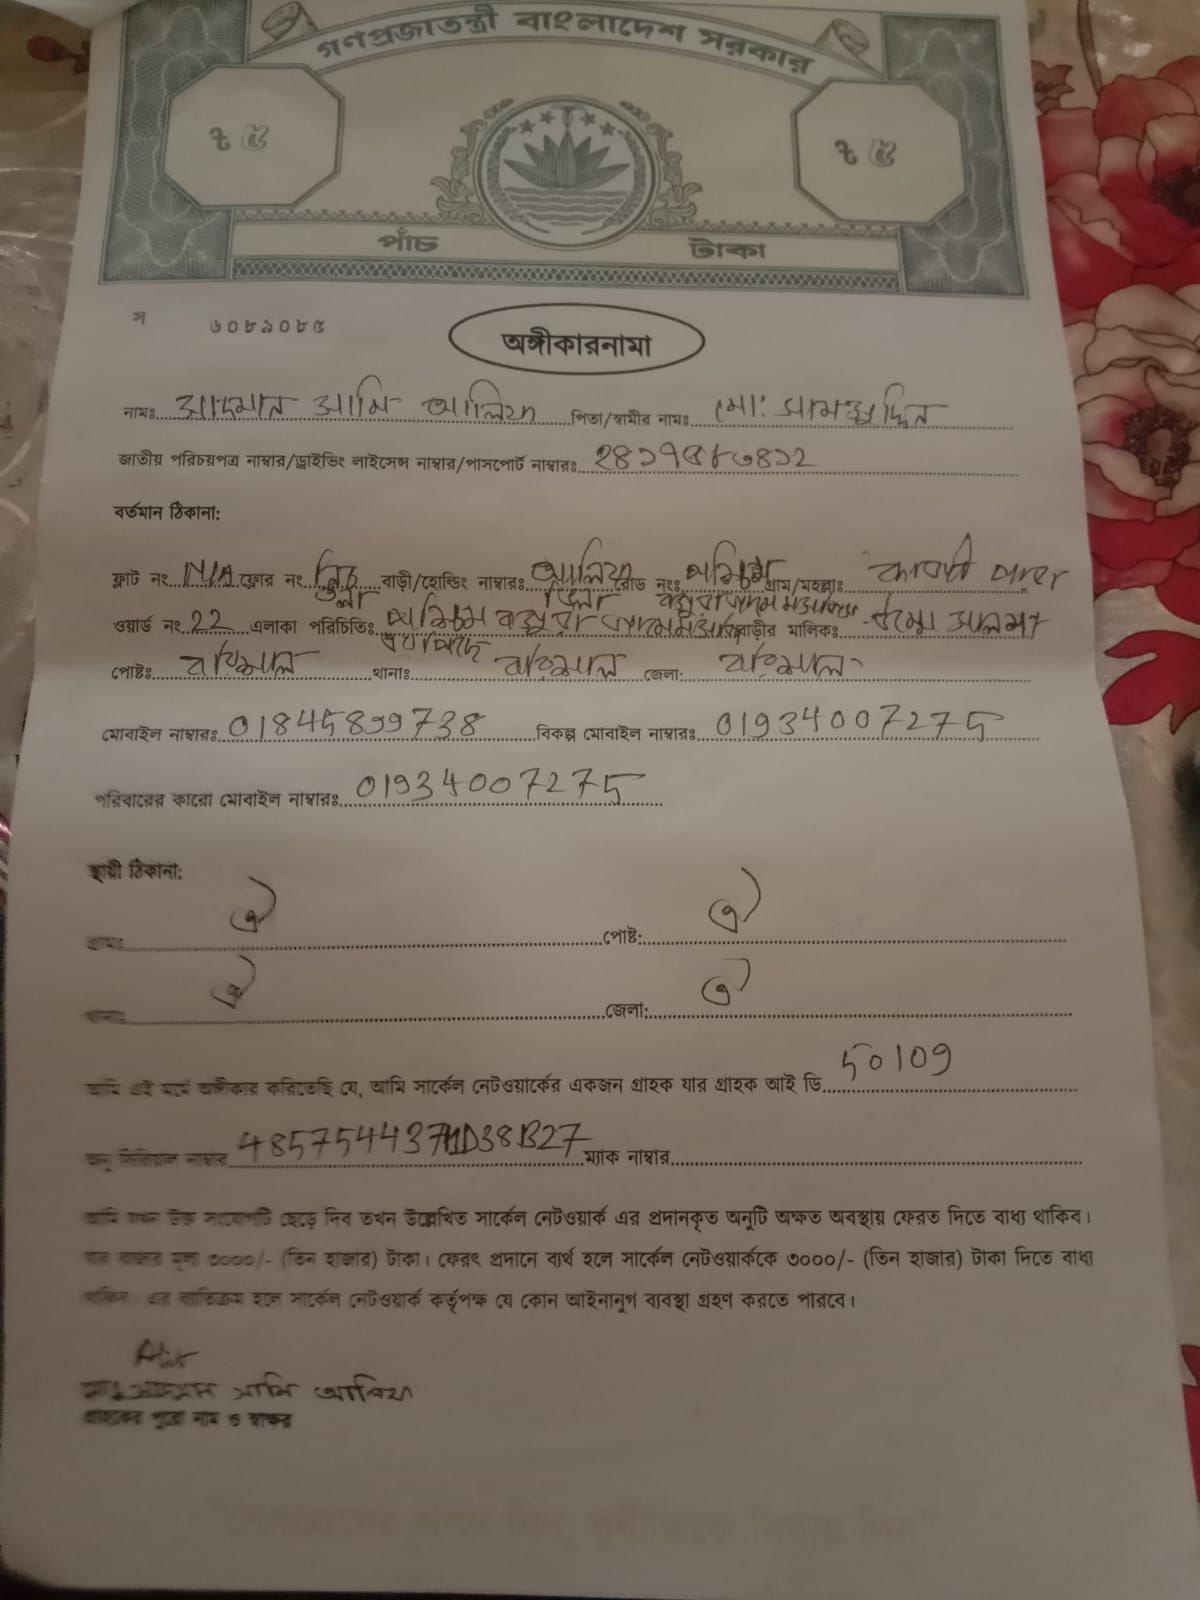 গণপ্রজাতন্ত্রী বাংলাদেশ সরকার
৳ ৫ ৳ ৫
পাঁচ টাকা
স ৬০৮৯০৮৫
অঙ্গীকারনামা
নামঃ আদনান আমি আলিফ পিতা/স্বামীর নামঃ মো: সামছুদ্দিন
জাতীয় পরিচয়পত্র নাম্বার/ড্রাইভিং লাইসেন্স নাম্বার/পাসপোর্ট নাম্বারঃ
বর্তমান ঠিকানা:
ফ্লাট নং N/A ফ্লোর নং নিচ তলা বাড়ী/হোল্ডিং নাম্বারঃ আলিফ ভিলা রোড নংঃ পশ্চিম গ্রাম/মহল্লাঃ
ওয়ার্ড নং 22 এলাকা পরিচিতিঃ পশ্চিম বগুরা বাড়ীর মালিকঃ
পোষ্টঃ বরিশাল থানাঃ বরিশাল জেলা: বরিশাল
মোবাইল নাম্বারঃ 01845899738 বিকল্প মোবাইল নাম্বারঃ 01934007275
পরিবারের কারো মোবাইল নাম্বারঃ 01934007275
স্থায়ী ঠিকানা:
গ্রামঃ ঐ পোষ্ট: ঐ
থানাঃ ঐ জেলা: ঐ
আমি এই মর্মে অঙ্গীকার করিতেছি যে, আমি সার্কেল নেটওয়ার্কের একজন গ্রাহক যার গ্রাহক আই ডি 50109
অনু সিরিয়াল নাম্বার ম্যাক নাম্বার
আমি যখন উক্ত সংযোগটি ছেড়ে দিব তখন উল্লেখিত সার্কেল নেটওয়ার্ক এর প্রদানকৃত অনুটি অক্ষত অবস্থায় ফেরত দিতে বাধ্য থাকিব।
যার বাজার মূল্য ৩০০০/- (তিন হাজার) টাকা। ফেরৎ প্রদানে ব্যর্থ হলে সার্কেল নেটওয়ার্ককে ৩০০০/- (তিন হাজার) টাকা দিতে বাধ্য
থাকিব এর ব্যতিক্রম হলে সার্কেল নেটওয়ার্ক কর্তৃপক্ষ যে কোন আইনানুগ ব্যবস্থা গ্রহণ করতে পারবে।
আমি আলিফ
গ্রাহকের পুরো নাম ও স্বাক্ষর